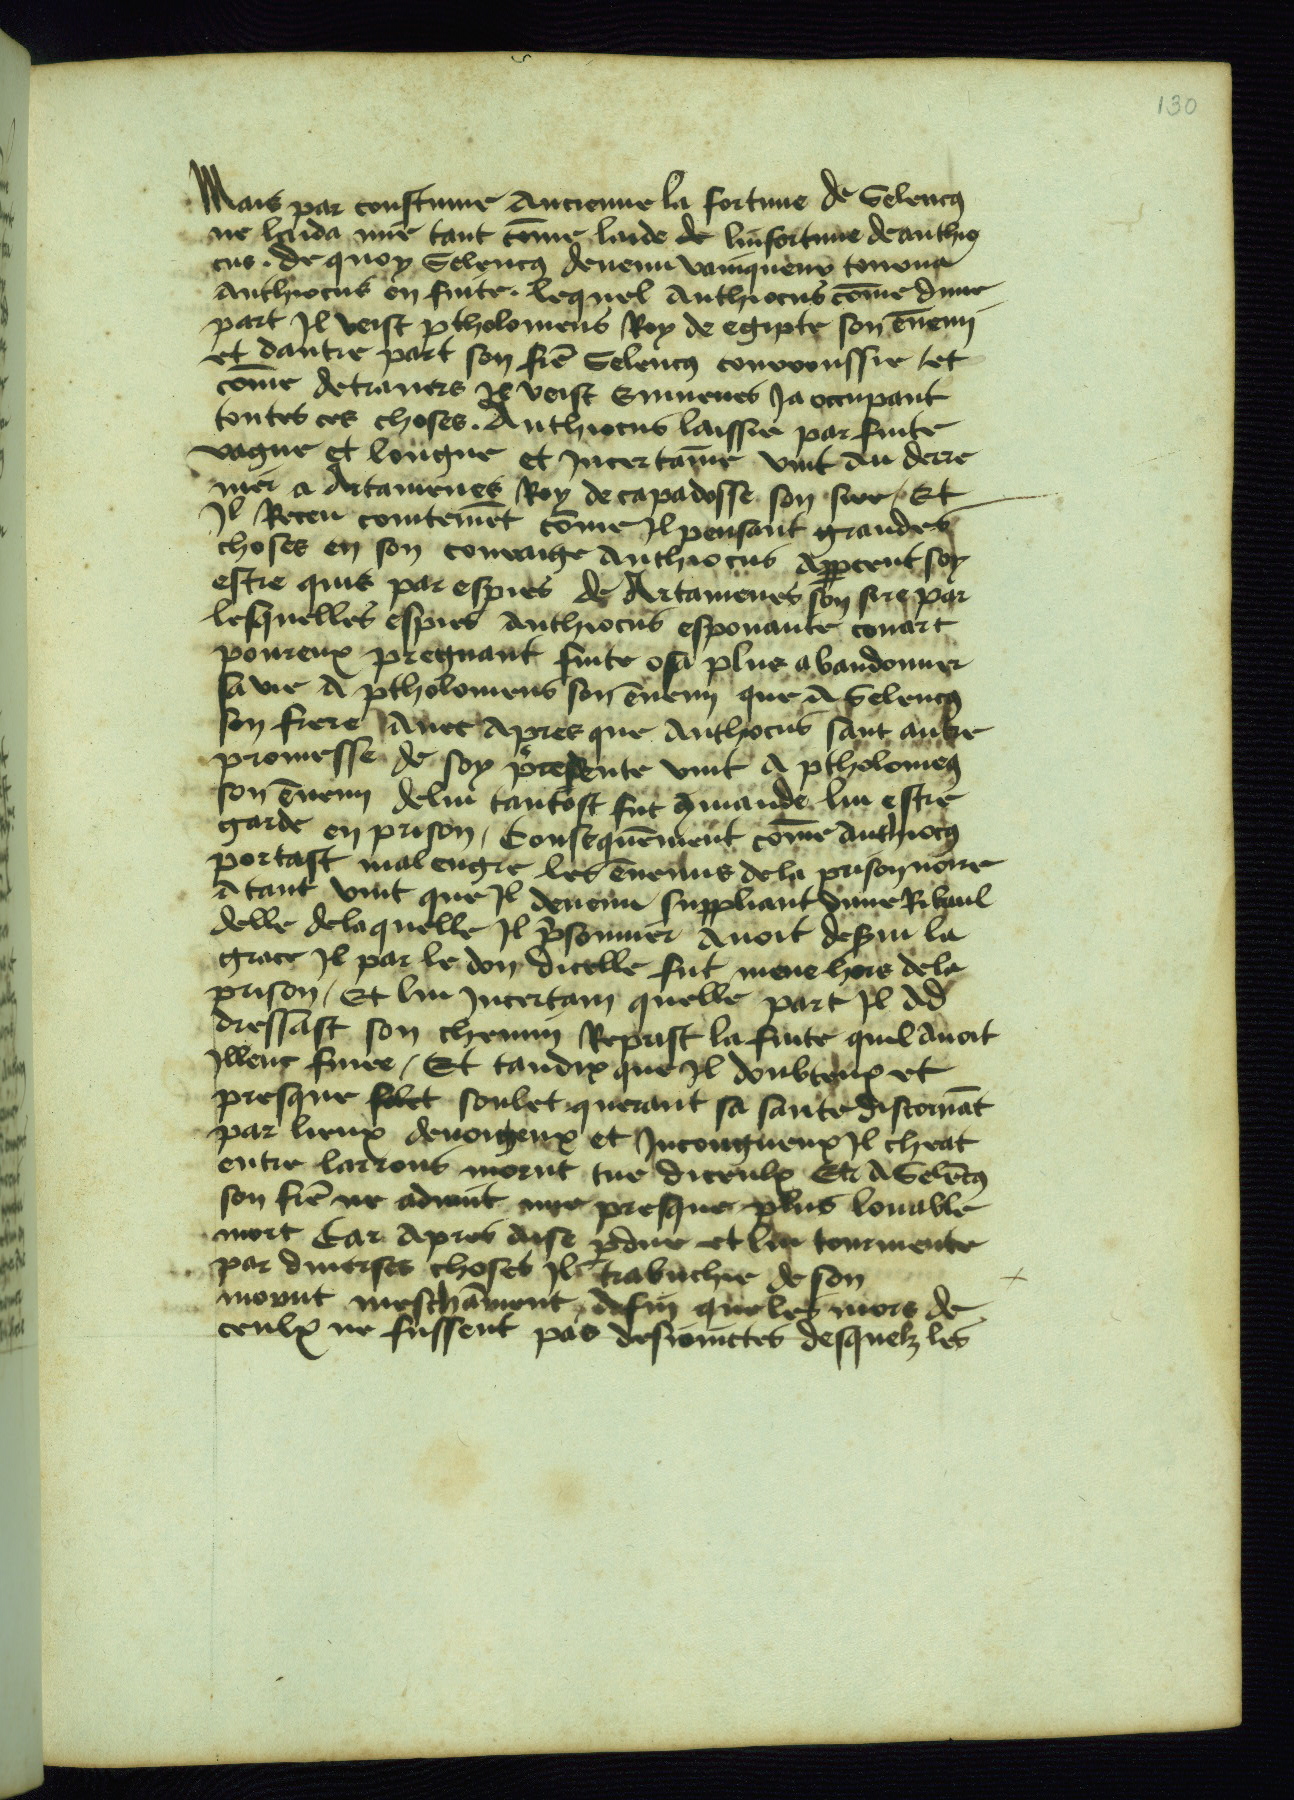 130
Mais par coustume Ancienne la fortune de Seleucꝯ
ne laida mie tant cōme laide de linfortune de anthio
cus. de quoy Seleucꝯ devenu vainqueur tourna
Anthiocus en fuite. lequel Anthiocus cōme dune
part Il veist ptholomeus Roy de egipte son ēnemi
et dautre part son frē Seleucꝯ courroussie / et
cōme detravers Il veist Eumenes Ja occupant
toutes ces choses. Anthiocus laissie par fuite
vague et longue et Incertaine vint Au derre
nier a Artamenes Roy de capadosse son sire / Et
Il Receu cointemēt cōme Il pensant grandes
choses en son couraige Anthiocus Apperceut soy
estre quis par espies de Artamenes son sire par
lesquelles espies Anthiocus espouante couart
poureux pregnant fuite osa plus abandonner
sa vie A ptholomeus son ēnemi que A Seleucꝯ
son frere Avec Apres que Anthiocus sant autre
promesse de soy presente vint A ptholomeꝯ
son ēnemi delui tantost fut ꝯmande lui estre
garde en prison / Consequēment cōme anthiocꝯ
portast mal engre les ēnemis de la prison noire
A tant vint que Il devenu suppliant dune Ribaul
delle delaquelle Il pͥsonnier Avoit deservi la
grace Il par le don dicelle fut mene hors dela
prison / Et lui Incertain quelle part Il Ad
dressast son chemin Reprist la fuite quil Avoit
Illeuc finee / Et tandix que Il doubteux et
presque soulet querant sa sante discourāt
par lieux devoigeux et Incongneux Il cheat
entre larrons morut tue diceulx Et A Seleūcꝯ
son frē ne advint mie presque plus louable
mort Car Apres Aise perdue et lui tourmente
par diverses choses Il trabuchie de son
morut meschāment, Afin que les mors de
ceulx ne fussent pas desioinctes desquelz les